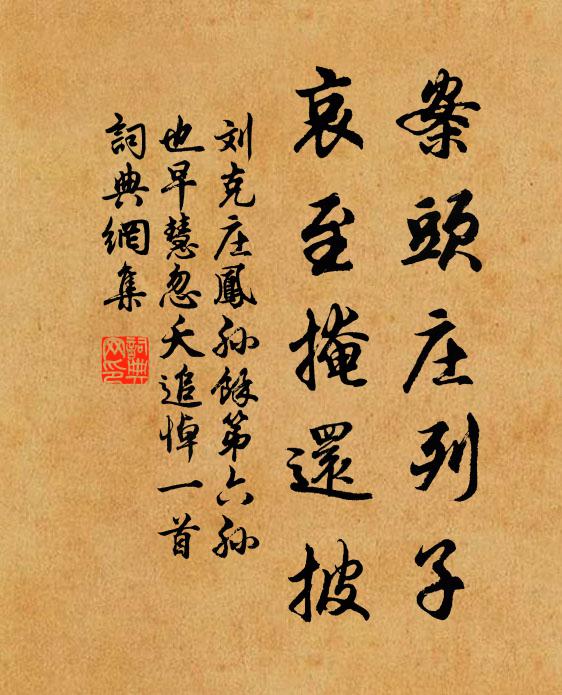 案頭庄列子
哀至掩還披
刘克庄鳳孙餘第六孙
也早慧忽夭追悼一首
詞典網集
詞典网印